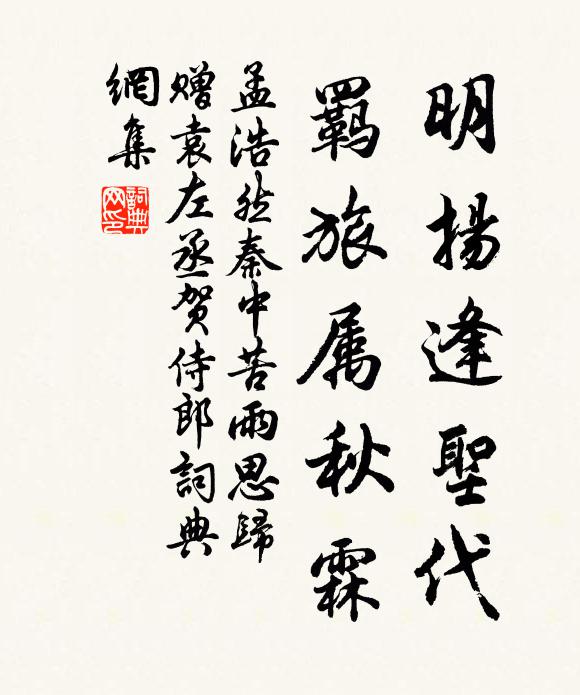 明揚逢聖代
羈旅属秋霖
孟浩然秦中苦雨思歸
赠袁左丞贺侍郎詞典
網集
詞典
网印